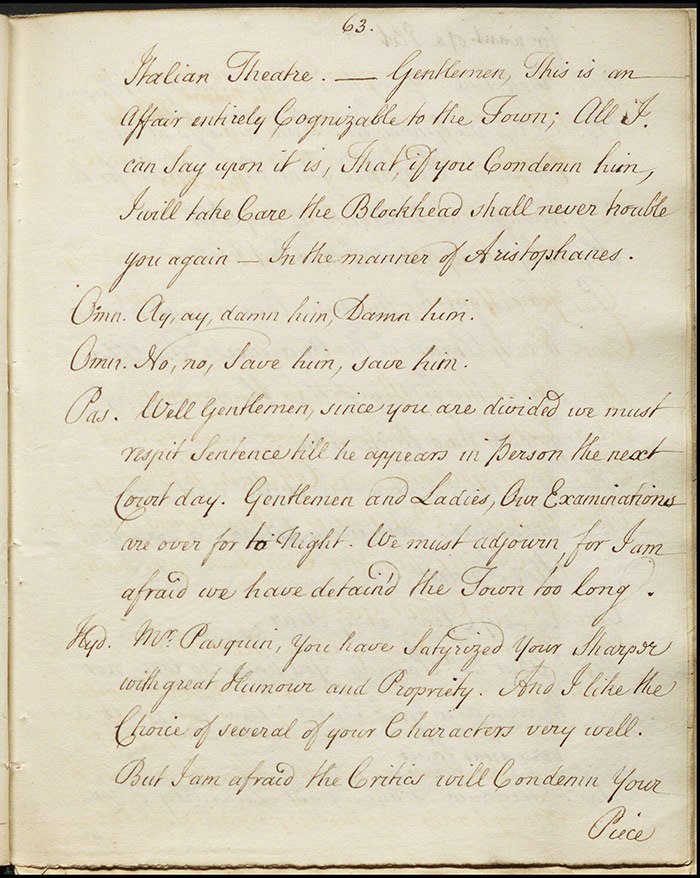 63.
Italian Theatre. — Gentlemen, This is an
Affair entirely Cognizable to the Town; All I
can Say upon it is, That, if you Condemn him,
I will take Care the Blockhead shall never trouble
you again — In the manner of Aristophanes.
Omn. Ay, ay, damn him, Damn him.
Omn. No, no, Save him, save him.
Pas. Well Gentlemen, since you are divided we must
respit Sentence till he appears in person the next
Court day. Gentlemen and Ladies, Our Examinations
are over for to Night. We must adjourn, for I am
afraid we have detain'd the Town too long.
Hyd. Mr. Pasquin, You have Satyrized Your Sharper
with great Humour and Propriety. And I like the
Choice of several of your Characters very well.
But I am afraid the Critics will Condemn Your
Piece